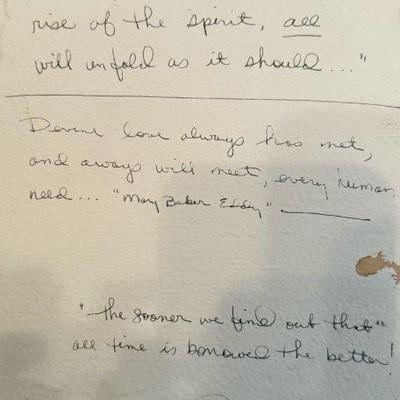 rise of the spirit, all
will unfold as it should..."
Devine love always has met,
and aways will meet, every human
need... "Mary Baker Eddy"
"the sooner we find out that"
all time is borrowed the better!